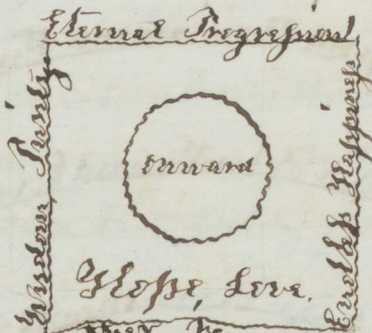 Eternal Progression
Wisdom Purity
onward
Endless Happiness
Hope, Love.